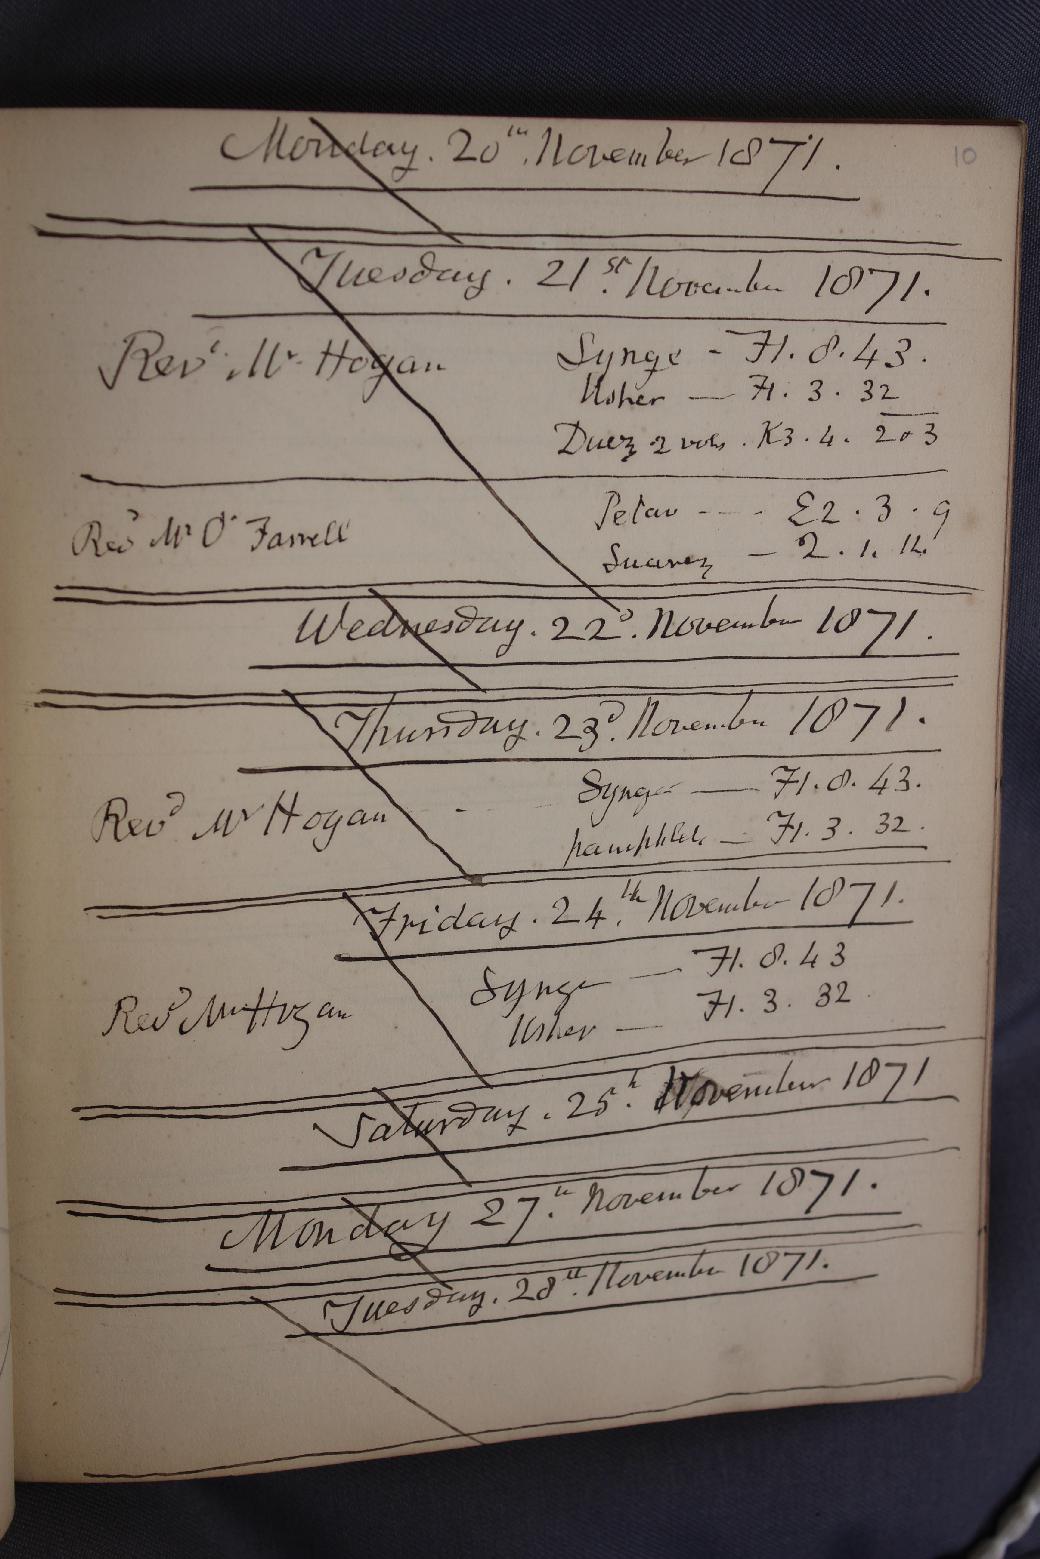 10
Monday. 20th. November 1871.
Tuesday. 21st. November 1871.
Revd. Mr Hogan Synge - F1. 8. 43.
Usher — F1. 3. 32
Duez 2 vols. K3. 4. 2 & 3
Revd Mr O'Farrell Petav - - - - E2. 3. 9
Suarez — 2. 1. 12.
Wednesday. 22d. November 1871.
Thursday. 23d. November 1871.
Revd Mr Hogan Synge — F1. 8. 43.
pamphlets — F1. 3. 32.
Friday. 24.th November 1871.
Revd Mr Hogan Synge — F1. 8. 43
Usher — F1. 3. 32
Saturday. 25.h November 1871
Monday 27.th November 1871.
Tuesday. 28th. November 1871.